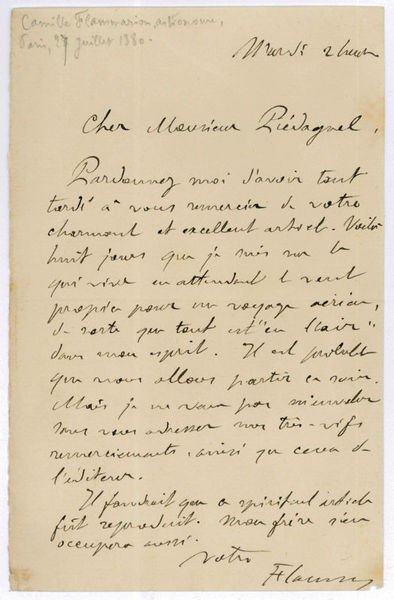 Camille Flammarion, astronome,
Paris, 27 juillet 1880.
Mardi 2 heures
Cher Monsieur Piédagnel,
Pardonnez moi d'avoir tant
tardé à vous remercier de votre
charmant et excellent article. Voilà
huit jours que je suis sur le
qui vive en attendant le vent
propice pour un voyage aérien,
de sorte que tout est "en l'air"
dans mon esprit. Il est probable
que nous allons partir ce soir.
Mais je ne veux pas m'envoler
sans vous adresser mes très-vifs
remerciements, ainsi que ceux de
l'éditeur.
Il faudrait que ce spirituel article
fût reproduit. Mon frère s'en
occupera aussi.
Votre
Flammarion